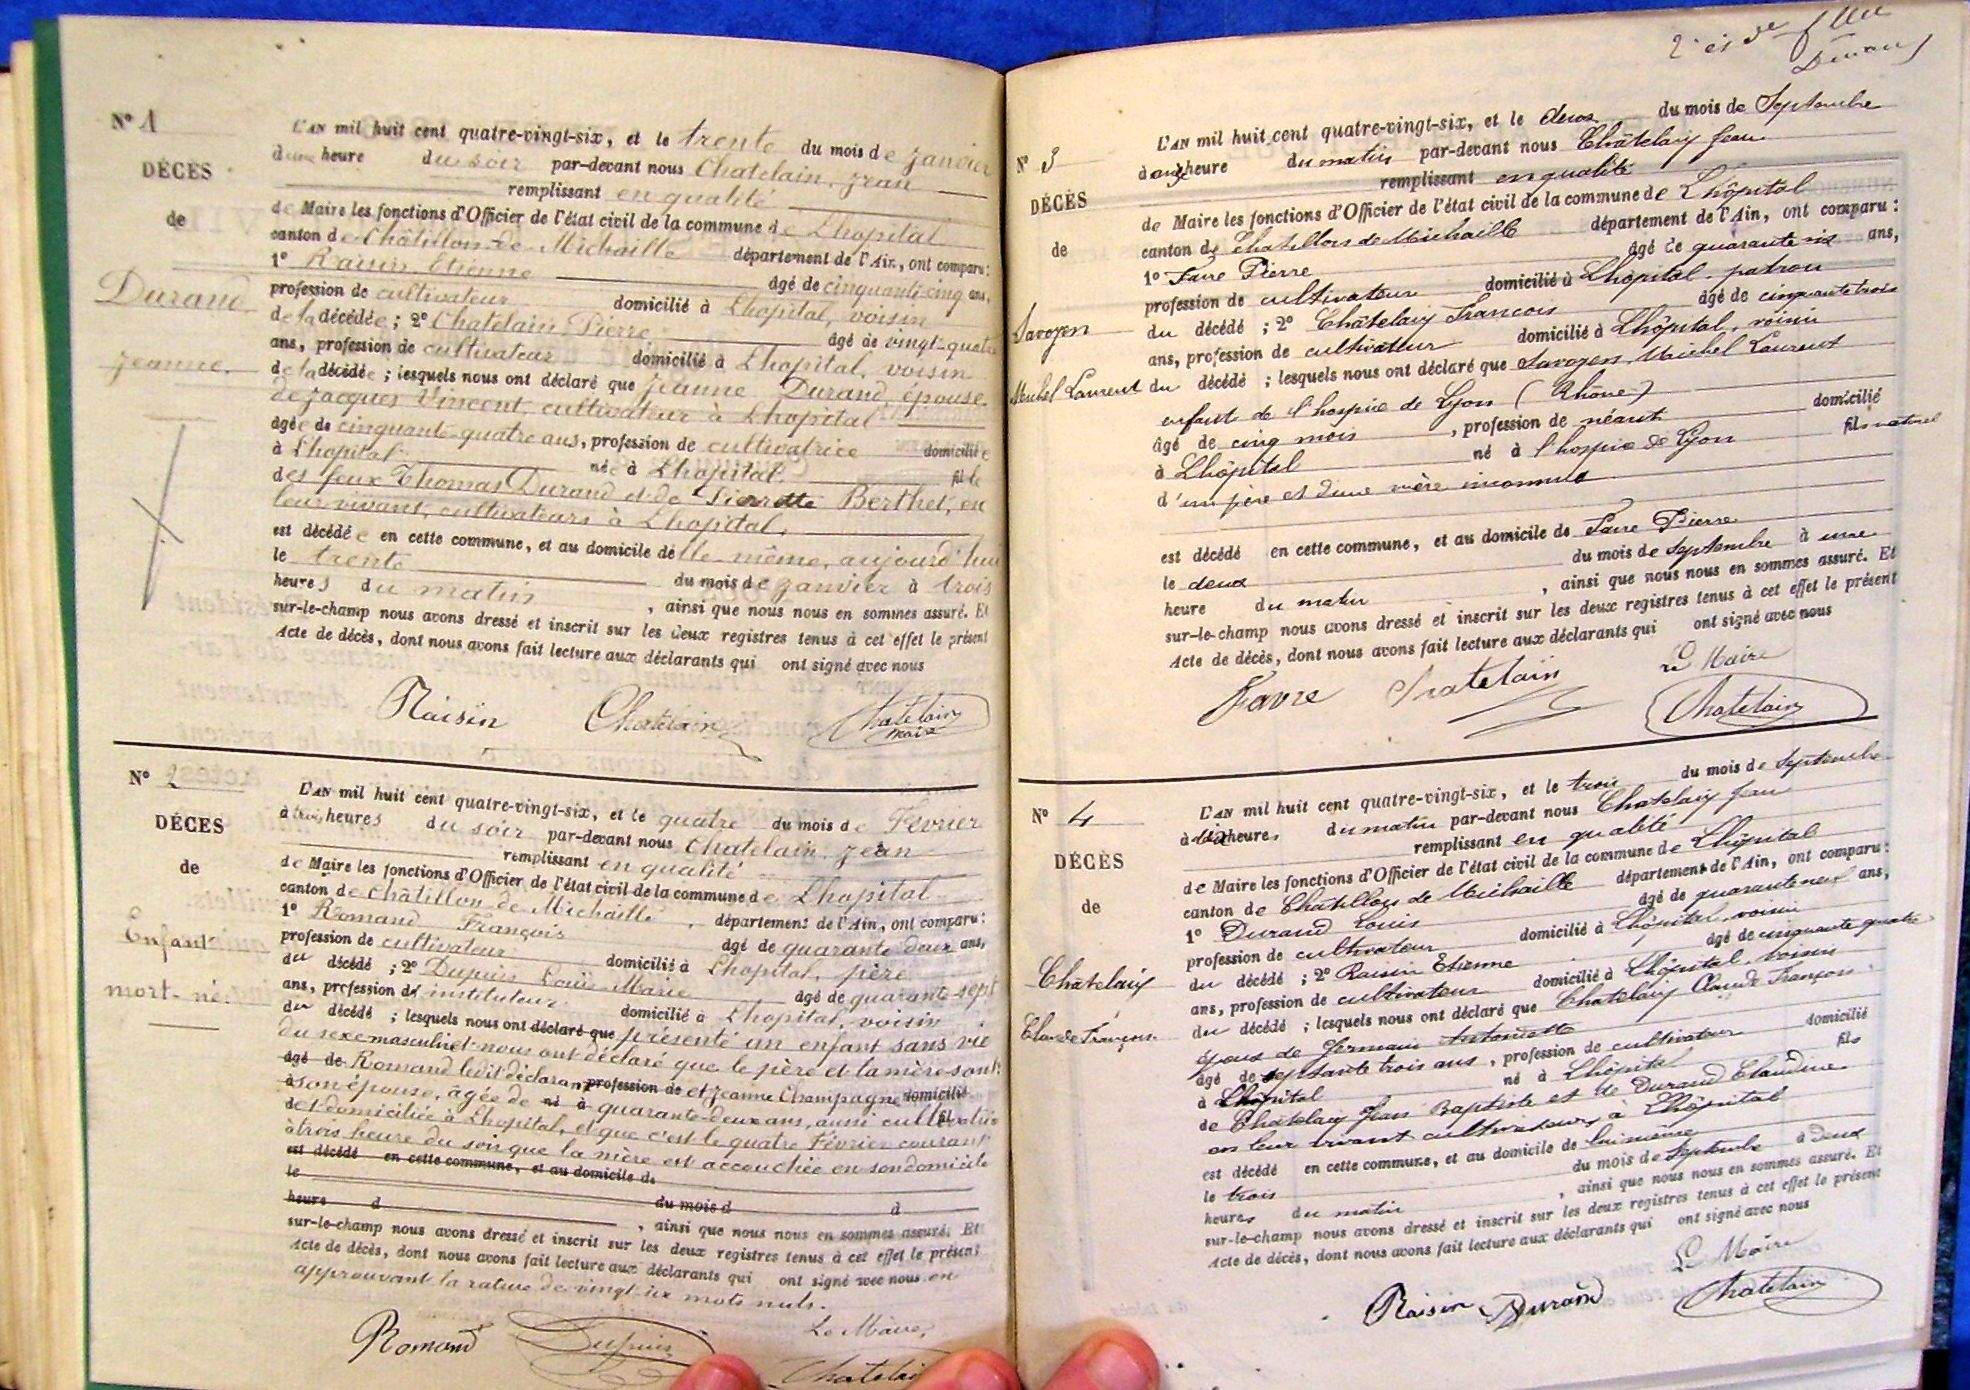 Nº 1
DÉCÈS
de
Durand
Jeanne.
L'AN mil huit cent quatre-vingt-six, et le trente du mois de Janvier
d'une heure du soir par-devant nous Chatelain, Jean
remplissant en qualité
de Maire les fonctions d'Officier de l'état civil de la commune de Lhopital
canton de Châtillon de Michaille département de l'Ain, ont comparu :
1º Raisin Etienne âgé de cinquante-cinq ans,
profession de cultivateur domicilié à Lhopital, voisin
de la décédée ; 2º Chatelain Pierre âgé de vingt-quatre
ans, profession de cultivateur domicilié à Lhopital, voisin
de la décédée ; lesquels nous ont déclaré que Jeanne Durand, épouse
de Jacques Vincent, cultivateur à Lhopital
âgée de cinquante-quatre ans, profession de cultivatrice domiciliée
à Lhopital née à Lhopital fille
des feux Thomas Durand et de Pierrette Berthet, en
leur vivant, cultivateurs à Lhopital,
est décédée en cette commune, et au domicile d'elle même, aujourd'hui
le trente du mois de Janvier à trois
heures du matin , ainsi que nous nous en sommes assuré. Et
sur-le-champ nous avons dressé et inscrit sur les deux registres tenus à cet effet le présent
Acte de décès, dont nous avons fait lecture aux déclarants qui ont signé avec nous
Raisin Chatelain Chatelain
maire
Nº 2
DÉCÈS
de
Enfant
mort-né.
L'AN mil huit cent quatre-vingt-six, et le quatre du mois de Février
à trois heures du soir par-devant nous Chatelain, Jean
remplissant en qualité
de Maire les fonctions d'Officier de l'état civil de la commune de Lhopital
canton de Châtillon de Michaille, département de l'Ain, ont comparu :
1º Romand François âgé de quarante deux ans,
profession de cultivateur domicilié à Lhopital, père
du décédé ; 2º Dupuis Louis Marie âgé de quarante-sept
ans, profession d' instituteur domicilié à Lhopital, voisin
du décédé ; lesquels nous ont déclaré que présenté un enfant sans vie
du sexe masculin et nous ont déclaré que le père et la mère sont:
âgé de Romand ledit déclarant profession de et Jeanne Champagne domicilié
à son épouse, âgée de né à quarante-deux ans, aussi cultivatrice
de et domiciliée à Lhopital, et que c'est le quatre Février courant fil
à trois heure du soir que la mère est accouchée en son domicile
est décédé en cette commune, et au domicile de
le
heure d du mois d à
, ainsi que nous nous en sommes assuré. Et
sur-le-champ nous avons dressé et inscrit sur les deux registres tenus à cet effet le présent
Acte de décès, dont nous avons fait lecture aux déclarants qui ont signé avec nous en
approuvant la rature de vingt-six mots nuls.
Le Maire,
Romand Dupuis Chatelain
2e et
Durand
Nº 3
DÉCÈS
de
Savoyen
Michel Laurent
L'AN mil huit cent quatre-vingt-six, et le deux du mois de Septembre
à onze heure du matin par-devant nous Châtelain Jean
remplissant en qualité
de Maire les fonctions d'Officier de l'état civil de la commune de Lhôpital
canton de Chatillon de Michaille département de l'Ain, ont comparu :
1º Favre Pierre âgé de quarante six ans,
profession de cultivateur domicilié à Lhôpital patron
du décédé ; 2º Châtelain Francois âgé de cinquante trois
ans, profession de cultivateur domicilié à Lhôpital, voisin
du décédé ; lesquels nous ont déclaré que Savoyen Michel Laurent
enfant de l'hospice de Lyon (Rhône)
âgé de cinq mois , profession de néant domicilié
à Lhôpital né à l'hospice de Lyon fils naturel
d'un père et d'une mère inconnus
est décédé en cette commune, et au domicile de Favre Pierre
le deux du mois de septembre à une
heure du matin , ainsi que nous nous en sommes assuré. Et
sur-le-champ nous avons dressé et inscrit sur les deux registres tenus à cet effet le présent
Acte de décès, dont nous avons fait lecture aux déclarants qui ont signé avec nous
Le Maire
Favre Chatelain Chatelain
Nº 4
DÉCÈS
de
Châtelain
Claude François
L'AN mil huit cent quatre-vingt-six, et le trois du mois de Septembre
à dix heures du matin par-devant nous Chatelain Jean
remplissant en qualité
de Maire les fonctions d'Officier de l'état civil de la commune de Lhôpital
canton de Châtillon de Michaille département de l'Ain, ont comparu :
1º Durand Louis âgé de quarante neuf ans,
profession de cultivateur domicilié à Lhôpital, voisin
du décédé ; 2º Raisin Etienne âgé de cinquante quatre
ans, profession de cultivateur domicilié à Lhôpital voisin
du décédé ; lesquels nous ont déclaré que Chatelain Claude François
époux de Germain Antoinette
âgé de septante trois ans , profession de cultivateur domicilié
à Lhôpital né à Lhôpital fils
de Châtelain Jean Baptiste et de Durand Claudine
en leur vivant cultivateurs à Lhôpital
est décédé en cette commune, et au domicile de lui même
le trois du mois de Septembre à deux
heures du matin , ainsi que nous nous en sommes assuré. Et
sur-le-champ nous avons dressé et inscrit sur les deux registres tenus à cet effet le présent
Acte de décès, dont nous avons fait lecture aux déclarants qui ont signé avec nous
Le Maire
Raisin Durand Chatelain